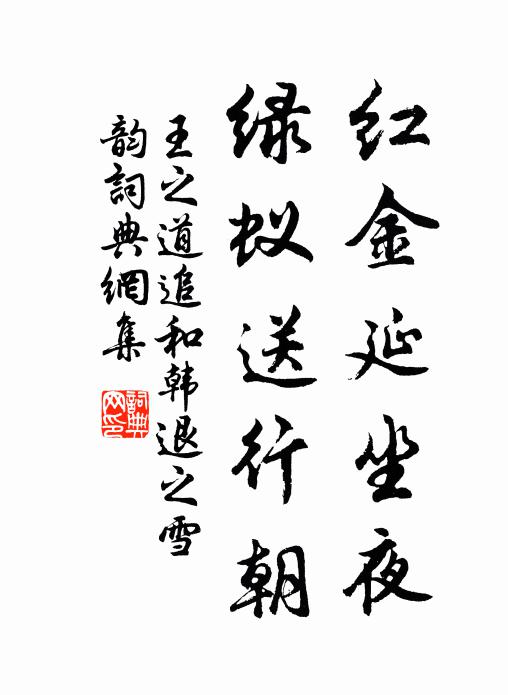 红金延坐夜
绿蚁送行朝
王之道追和韩退之雪
韵詞典網集
詞典网印